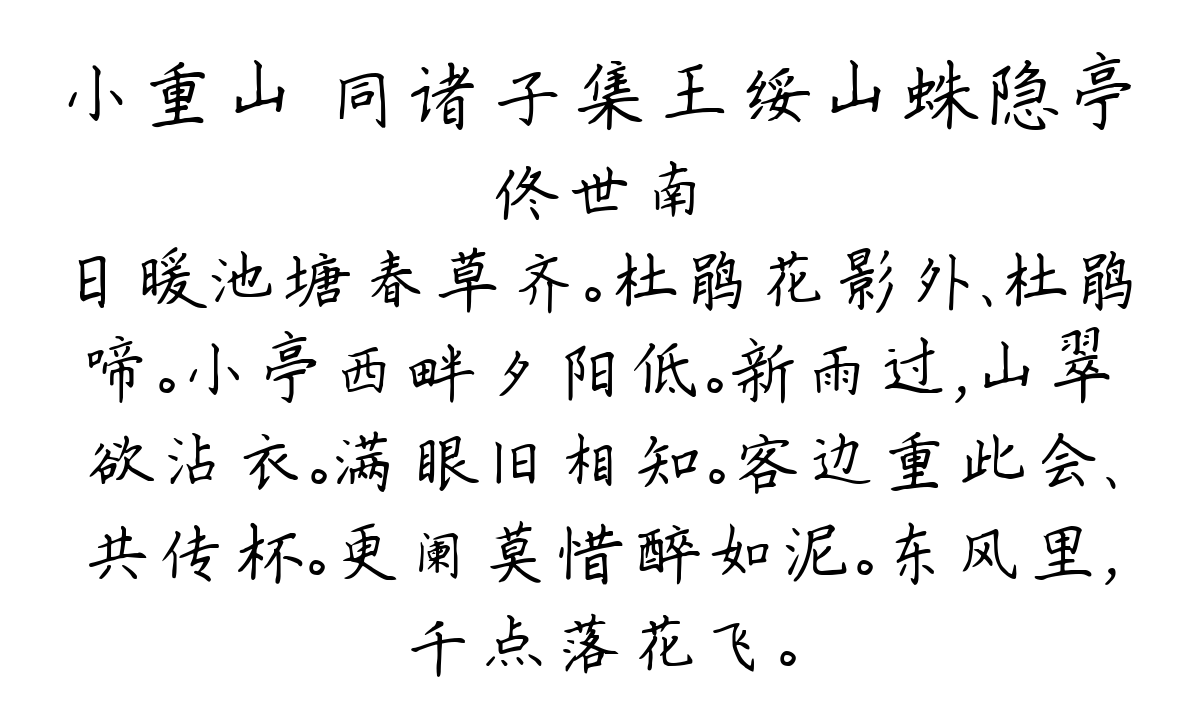 小重山 同诸子集王绥山蛛隐亭
佟世南
日暖池塘春草齐。杜鹃花影外、杜鹃
啼。小亭西畔夕阳低。新雨过,山翠
欲沾衣。满眼旧相知。客边重此会、
共传杯。更阑莫惜醉如泥。东风里,
千点落花飞。